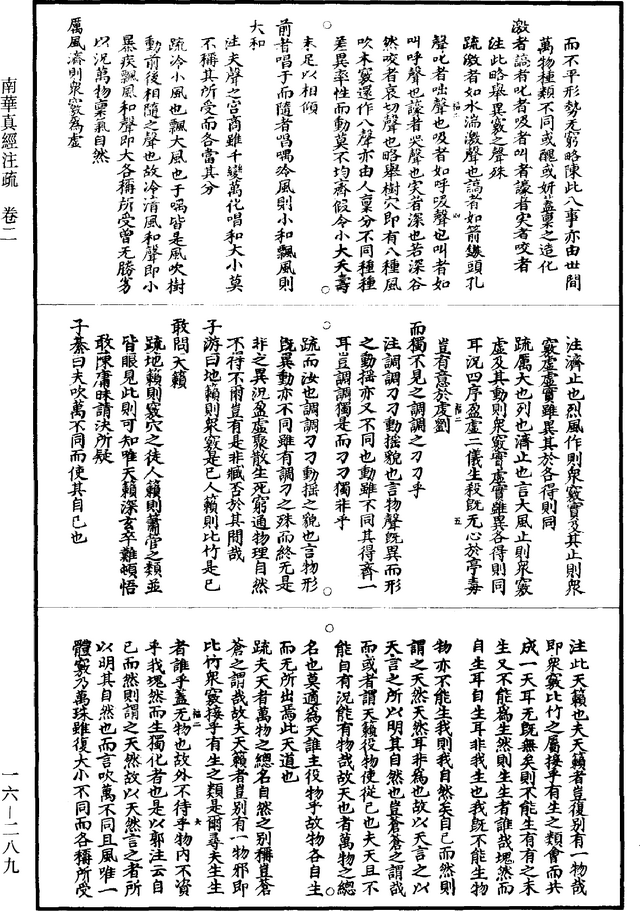 而不平形勢无窮略陳此八事亦由世間
萬物種類不同或醜或妍蓋稟之造化
激者謞者叱者吸者叫者譹者宎者咬者
注此略舉異竅之聲殊
疏激者如水湍激聲也謞者如箭鏃頭孔
聲叱者咄聲也吸者如呼吸聲也叫者如
叫呼聲也譹者哭聲也宎者深也若深谷
然咬者哀切聲也略舉樹穴即有八種風
吹木竅還作八聲亦由人稟分不同種種
差異率性而動莫不均齊假令小大夭壽
未足以相傾
前者唱于而隨者唱喁泠風則小和飄風則
大和
注夫聲之宮商雖千變萬化唱和大小莫
不稱其所受而各當其分
疏泠小風也飄大風也于喁皆是風吹樹
動前後相隨之聲也故泠清風和聲即小
暴疾飄風和聲即大各稱所受曾无勝劣
以況萬物稟氣自然
厲風濟則眾竅為虛
南華真經注疏 卷二
注濟止也烈風作則眾竅實及其止則眾
竅虛虛實雖異其於各得則同
疏厲大也列也濟止也言大風止則眾竅
虛及其動則眾竅實虛實雖異各得則同
耳況四序盈虛二儀生殺既无心於亭毒
豈有意於虔劉
而獨不見之調調之刁刁乎
注調調刁刁動搖貌也言物聲既異而形
之動搖亦又不同也動雖不同其得齊一
耳豈調調獨是而刁刁獨非乎
疏而汝也調調刁刁動搖之貌也言物形
既異動亦不同雖有調刁之殊而終无是
非之異況盈虛聚散生死窮通物理自然
不得不爾豈有是非臧否於其間哉
子游曰地籟則眾竅是已人籟則比竹是已
敢問天籟
疏地籟則竅穴之徒人籟則簫管之類並
皆眼見此則可知唯天籟深玄卒難頓悟
敢陳庸昧請決所疑
子綦曰夫吹萬不同而使其自已也
注此天籟也夫天籟者豈復別有一物哉
即眾竅比竹之屬接乎有生之類會而共
成一天耳无既無矣則不能生有有之未
生又不能為生然則生生者誰哉塊然而
自生耳自生耳非我生也我既不能生物
物亦不能生我則我自然矣自己而然則
謂之天然天然耳非為也故以天言之以
天言之所以明其自然也豈蒼蒼之謂哉
而或者謂天籟役物使從已也夫天且不
能自有況能有物哉故天也者萬物之總
名也莫適為天誰主役物乎故物各自生
而无所出焉此天道也
疏夫天者萬物之總名自然之別稱豈蒼
蒼之謂哉故夫天籟者豈別有一物邪即
比竹眾竅接乎有生之類是爾尋夫生生
者誰乎蓋无物也故外不待乎物內不資
乎我塊然而生獨化者也是以郭注云自
已而然則謂之天然故以天然言之者所
以明其自然也而言吹萬不同且風唯一
體竅乃萬殊雖復大小不同而各稱所受
一六—二八九